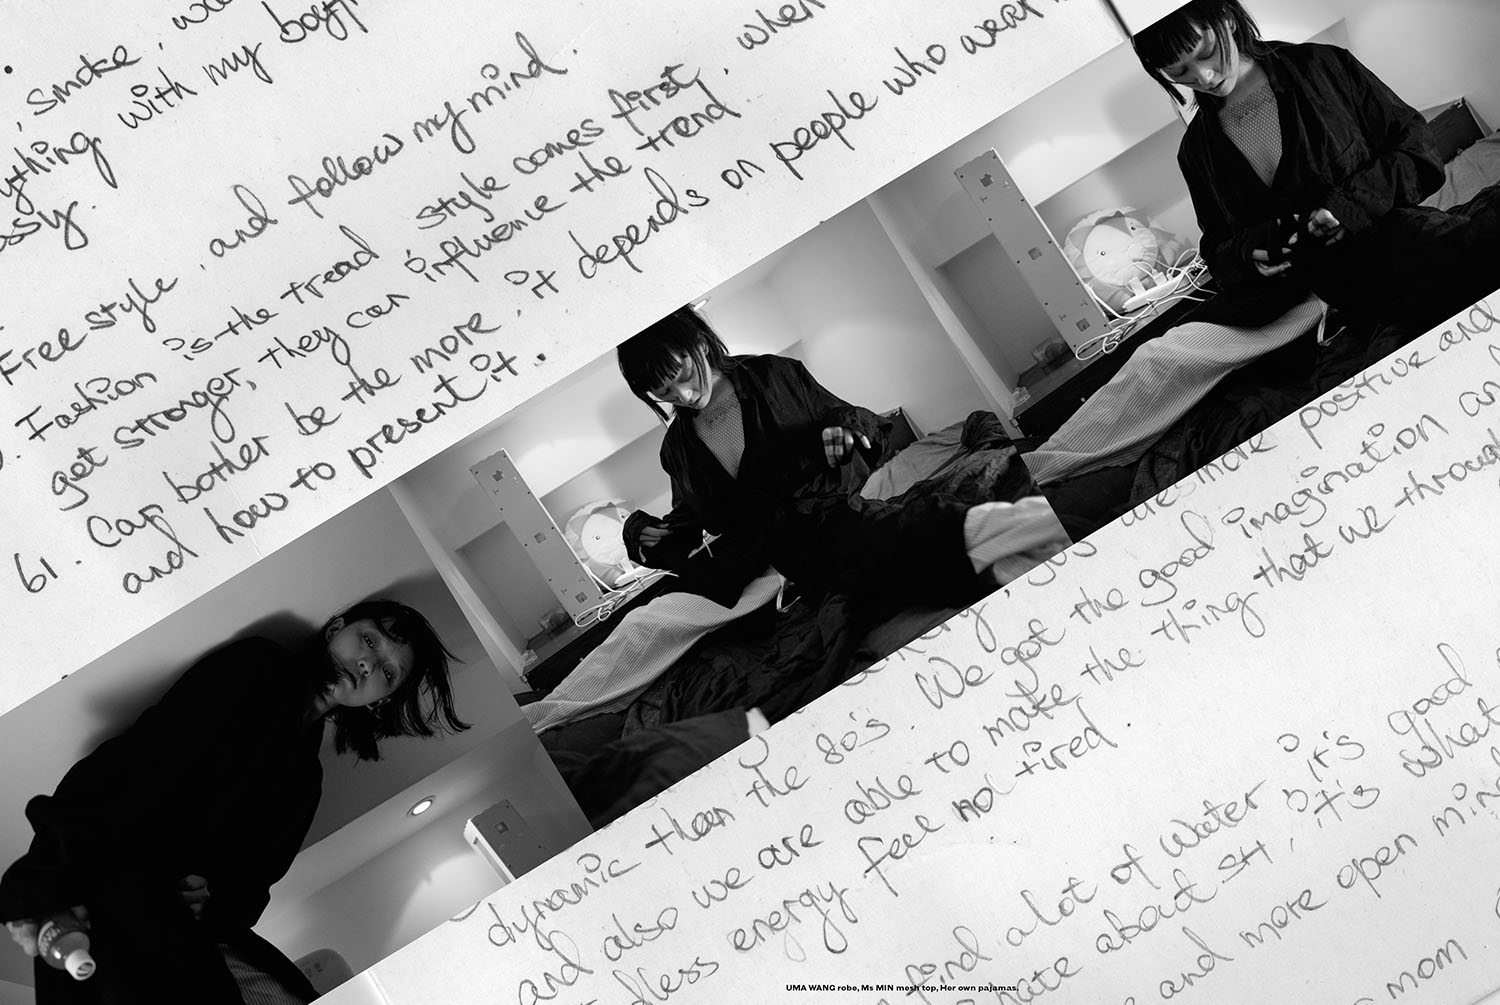 , smoke,
ything with my
ossy.
Free style, and follow my mind.
. Fashion is the tread style comes first, when
get stronger, they can influence the trend.
61. Can bother be the more, it depends on people who wear
and how to present it.
are more positive and
dynamic than the 80's. We got the good imagination an
and also we are able to make the thing that we throug
dless energy feel not tired.
find a lot of water, it's good
nate about SH, it's what
e and more open mind
mom
UMA WANG robe, Ms MIN mesh top, Her own pajamas.